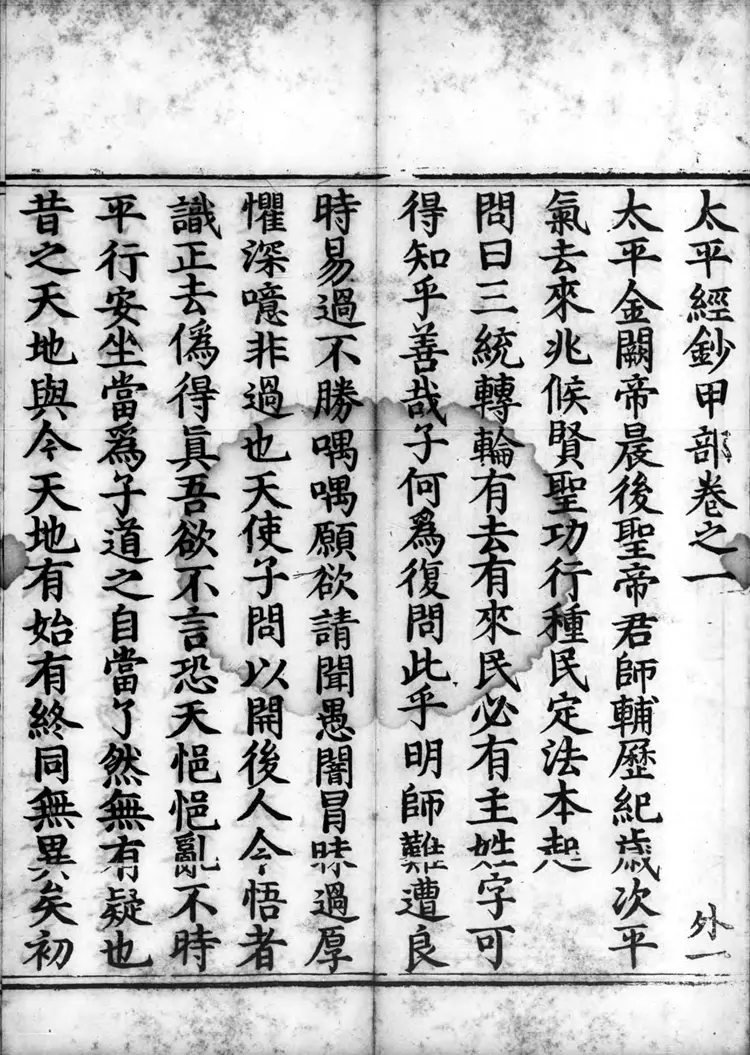 太平經鈔甲部卷之一 外一
太平金闕帝晨後聖帝君師輔歷紀歲次平
氣去來兆候賢聖功行種民定法本起
問曰三統轉輪有去有來民必有主姓字可
得知乎善哉子何爲復問此乎明師難遭良
時易過不勝喁喁願欲請聞愚闇冒昧過厚
懼深噫非過也天使子問以開後人今悟者
識正去僞得眞吾欲不言恐天悒悒亂不時
平行安坐當爲子道之自當了然無有疑也
昔之天地與今天地有始有終同無異矣初